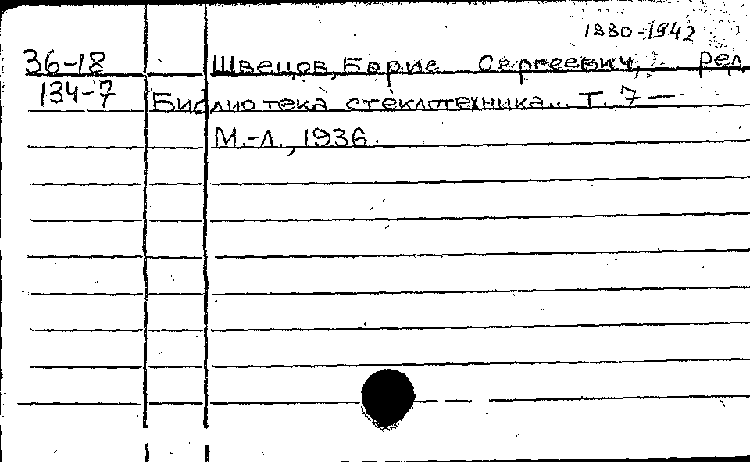 1880-1942
36-18 Швецов, Борис Сергеевич, ред.
134-7 Библиотека стеклотехника... Т. 7 —
М.-Л., 1936.